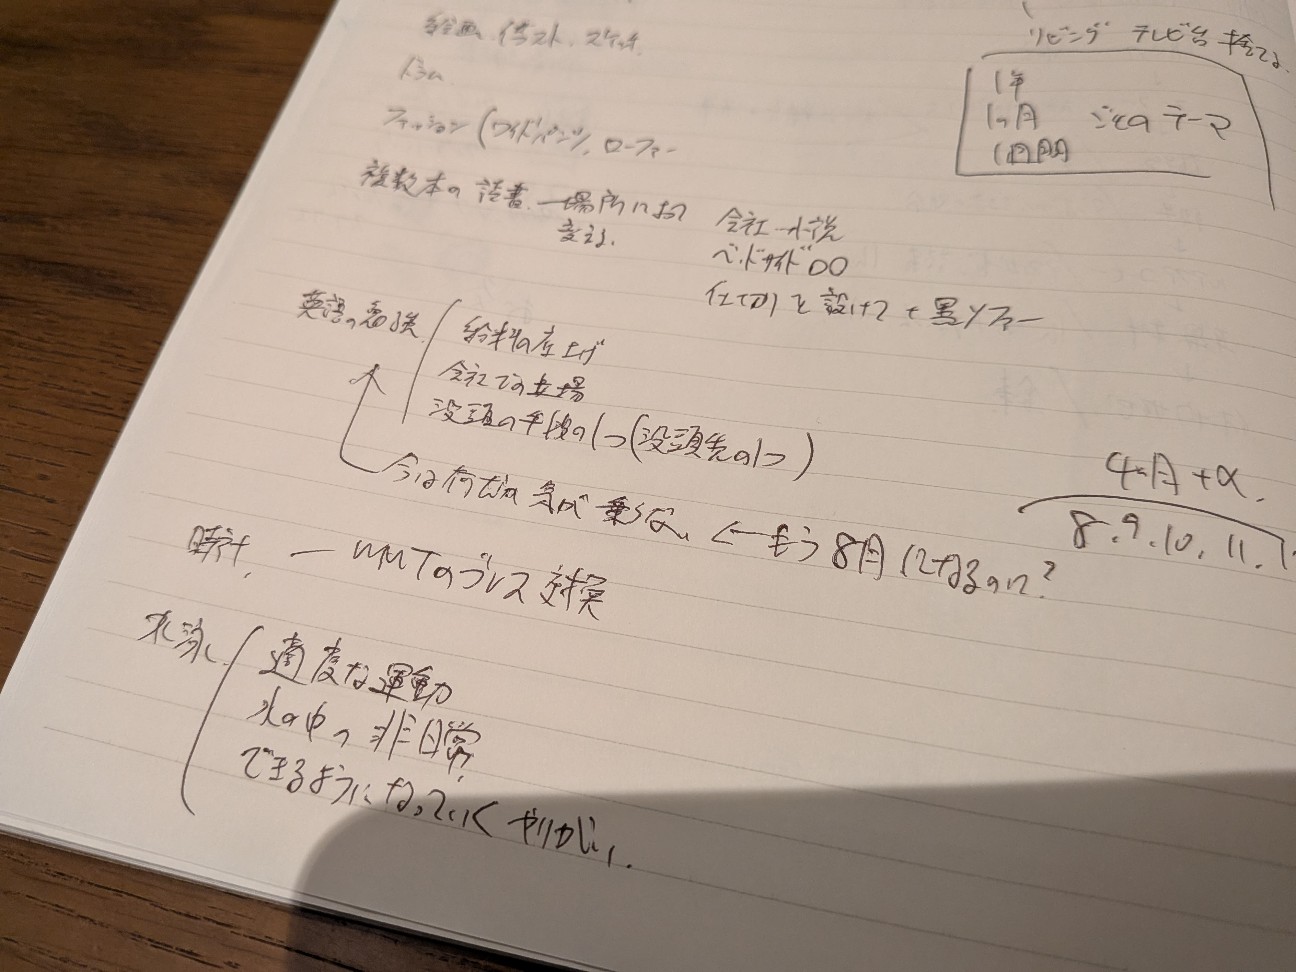 リビング テレビ台 捨てる
1年
1ヶ月 ごとのテーマ
1週間
絵画、イラスト、スケッチ
ドラム
ファッション(ワイドパンツ、ローファー
複数本の読書、一場所によって
変える。
会社→小説
ベッドサイド〇〇
仕切りを設けて+黒ソファー
英語の勉強
給料の底上げ
会社での立場
没頭の手段の1つ(没頭先の1つ)
今は何だか気が乗らない ←もう8月になるのに?
4ヶ月+α.
8.9.10.11.1
時計、 ー MMTのブレス交換
水泳
適度な運動
水の中の非日常
できるようになっていくやりがい。